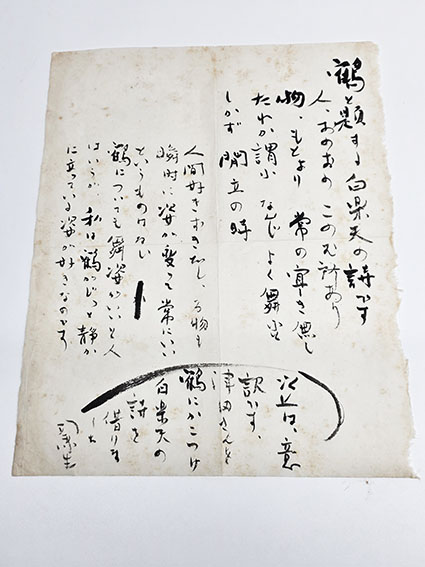 鶴と題する白楽天の詩です
人、おのおの このむ所あり
物、もとより 常の宜き無し
たれか謂ふ なんじ よく舞ふと
しかず 閑立の時
人間好きずきだし、物も
瞬時に姿が変って常にいい
というものはない
鶴についても舞姿がいいと人
はいうが 私は鶴がじっと静か
に立っている姿が好きなのです
以上は、意
訳です、
津田さんを
鶴にかこつけ
白楽天の
詩を
借りま
した